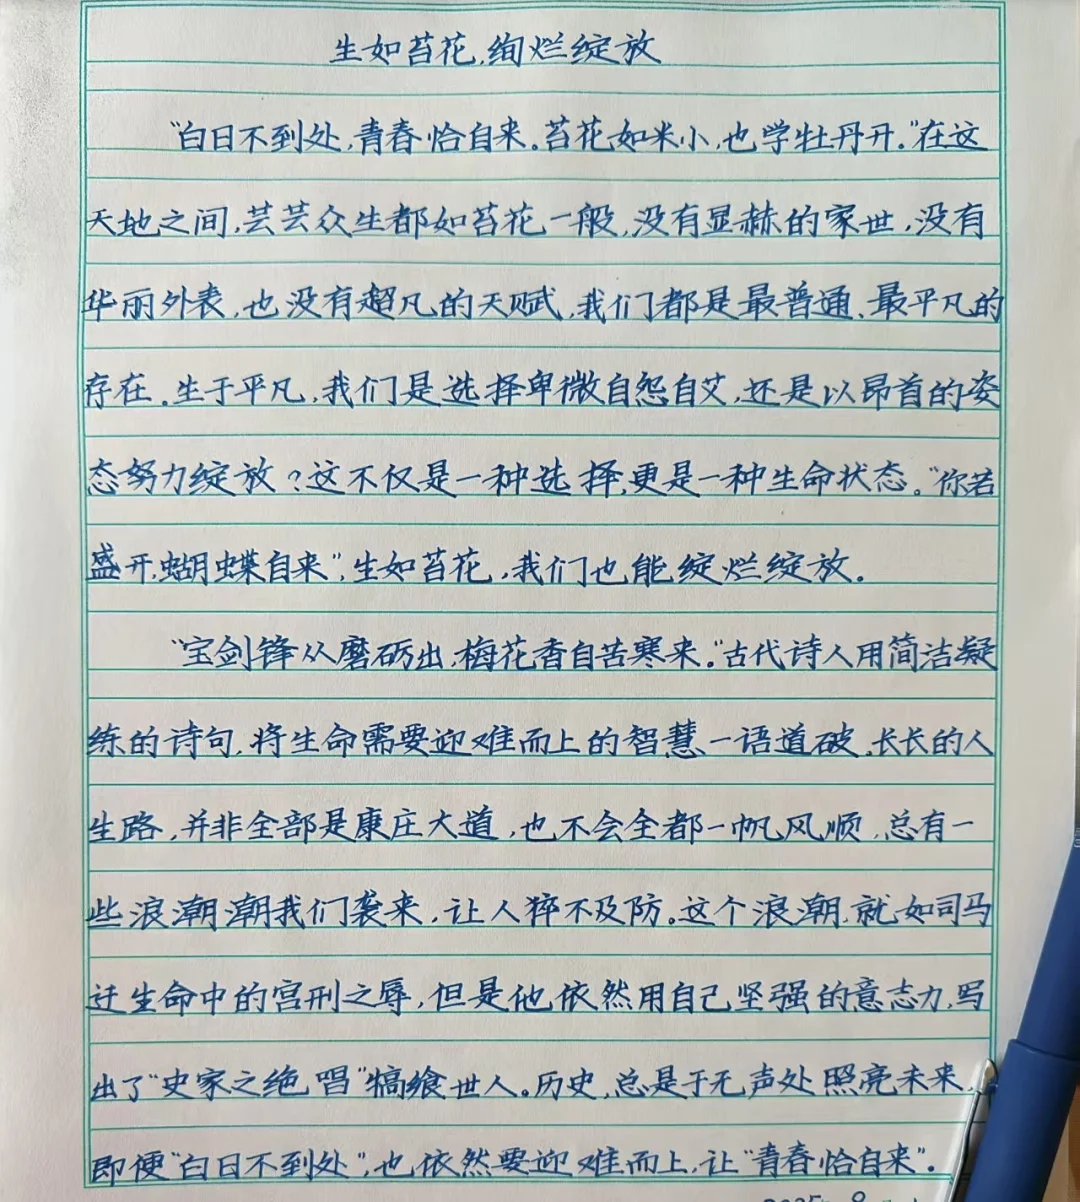 生如苔花,绚烂绽放
"白日不到处,青春恰自来。苔花如米小,也学牡丹开。"在这
天地之间,芸芸众生都如苔花一般,没有显赫的家世,没有
华丽外表,也没有超凡的天赋,我们都是最普通、最平凡的
存在。生于平凡,我们是选择卑微自怨自艾,还是以昂首的姿
态努力绽放?这不仅是一种选择,更是一种生命状态。"你若
盛开,蝴蝶自来",生如苔花,我们也能绽烂绽放。
"宝剑锋从磨砺出,梅花香自苦寒来。"古代诗人用简洁凝
练的诗句,将生命需要迎难而上的智慧一语道破。长长的人
生路,并非全部是康庄大道,也不会全都一帆风顺,总有一
些浪潮潮我们袭来,让人猝不及防。这个浪潮,就如司马
迁生命中的宫刑之辱,但是他依然用自己坚强的意志力,写
出了"史家之绝唱"犒飨世人。历史,总是于无声处照亮未来,
即便"白日不到处",也依然要迎难而上,让"青春恰自来"。